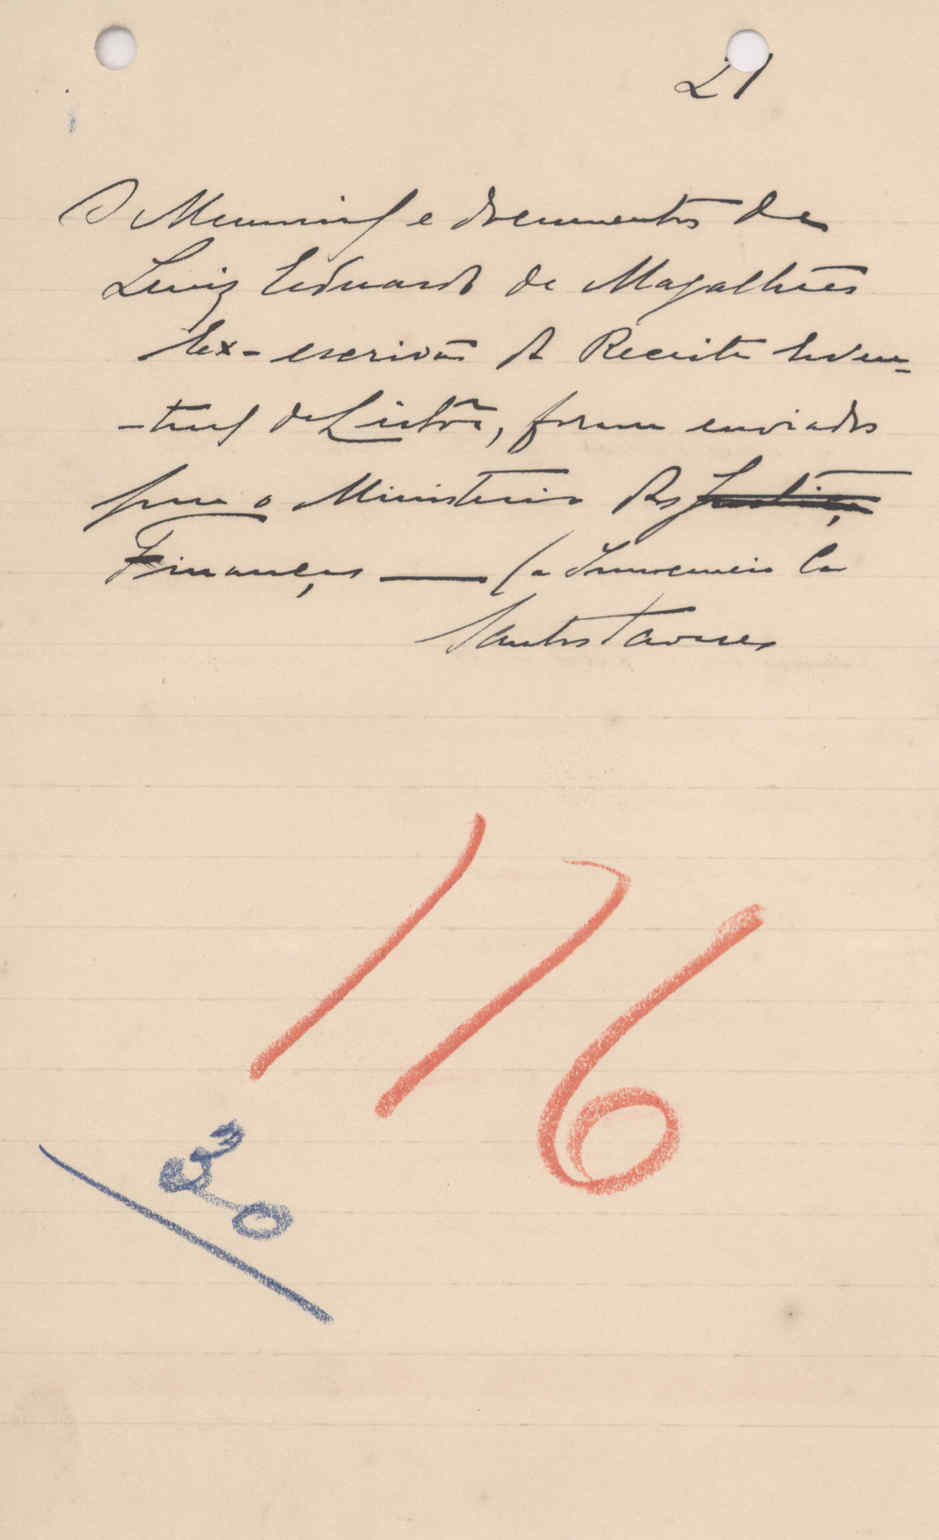 21
O Memorial e documentos de
Luiz Eduardo de Magalhães
Ex-escrivão da Receita Even-
-tual de Lisbôa, foram enviados
para o Ministerio das Justiça,
Finanças — (a Innocencio Ca
Santos Tavares
176
30